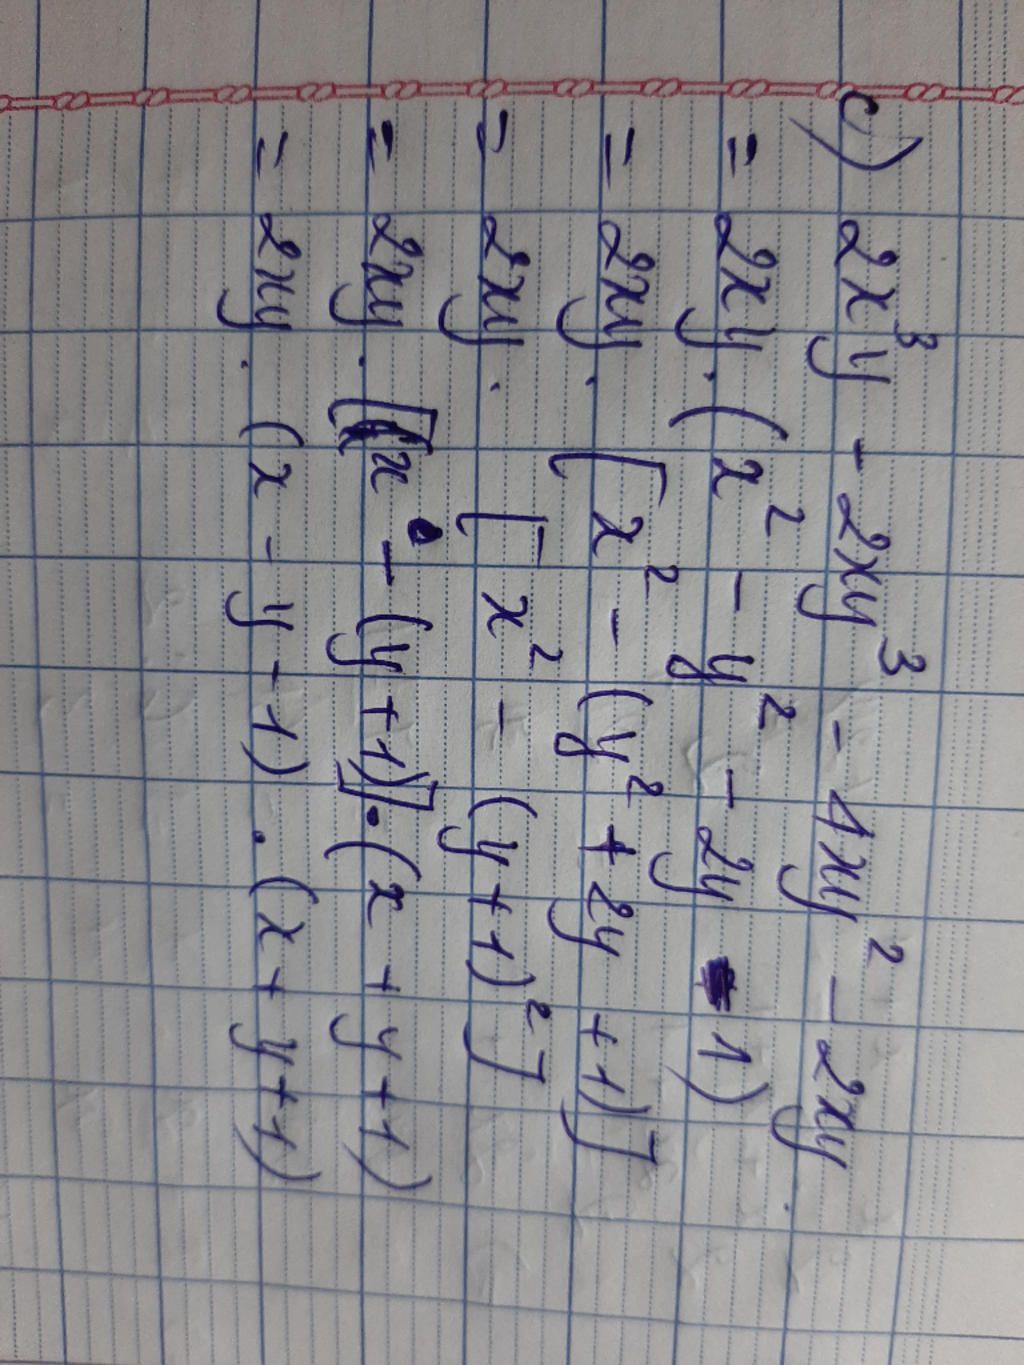 c) 2x³y - 2xy³ - 4xy² - 2xy
= 2xy . (x² - y² - 2y - 1)
= 2xy . [x² - (y² + 2y + 1)]
= 2xy . [x² - (y + 1)²]
= 2xy . [x - (y + 1)] . (x + y + 1)
= 2xy . (x - y - 1) . (x + y + 1)